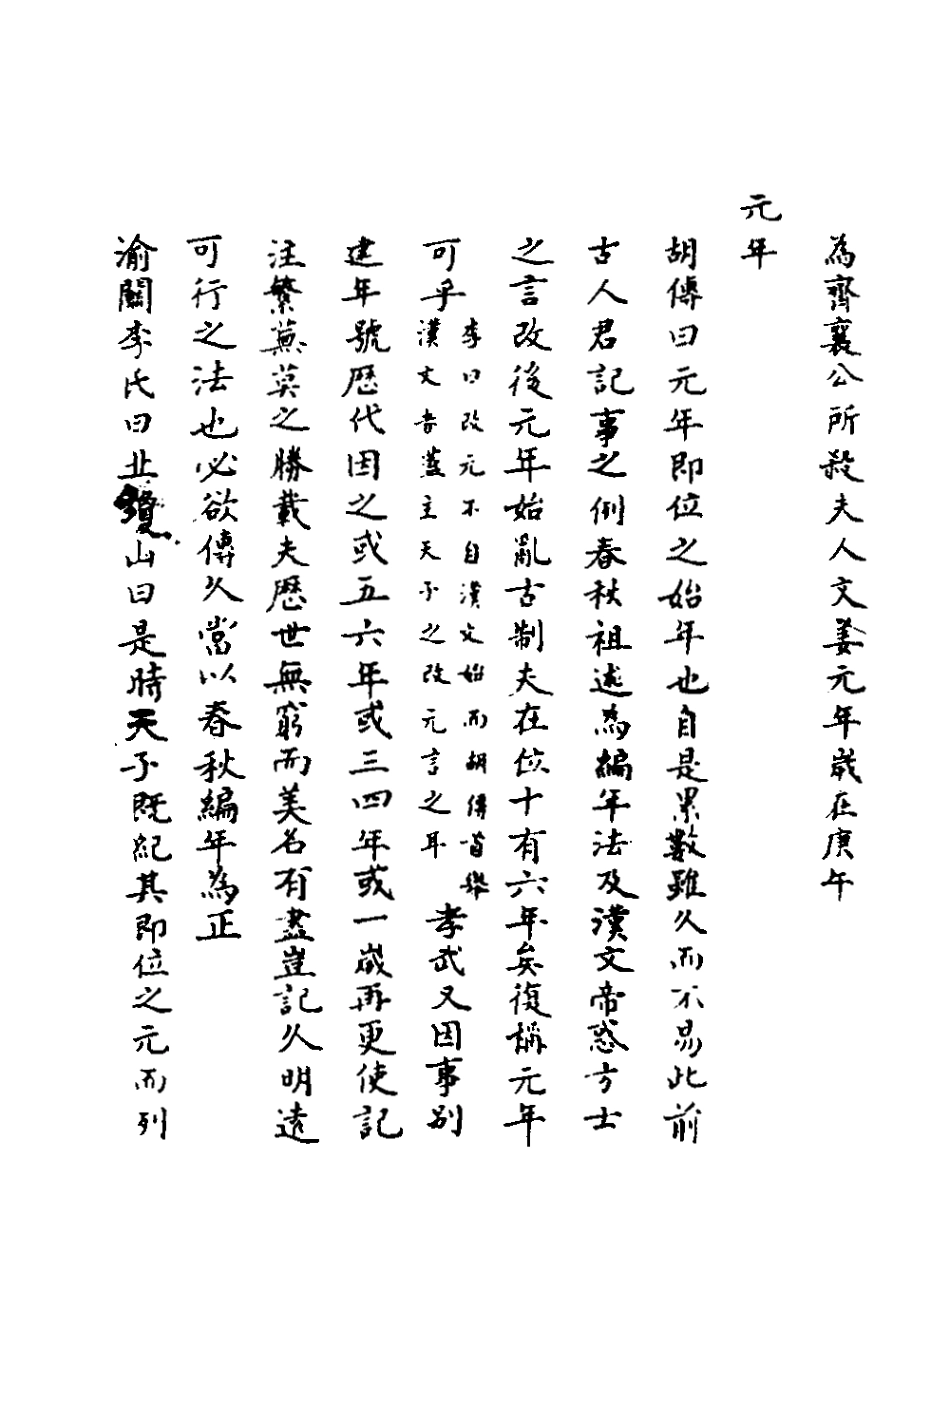 為齊襄公所殺夫人文姜元年歲在庚午
元年
胡傳曰元年即位之始年也自是累數雖久而不易此前
古人君記事之例春秋祖述為編年法及漢文帝惑方士
之言改後元年始亂古制夫在位十有六年矣復稱元年
可乎
李曰改元不自漢文始而胡傳皆舉
漢文者蓋主天子之改元言之耳
孝武又因事別
建年號歷代因之或五六年或三四年或一歲再更使記
注繁蕪莫之勝載夫歷世無窮而美名有盡豈記久明遠
可行之法也必欲傳久當以春秋編年為正
渝關李氏曰北山曰是時天子既紀其即位之元而列